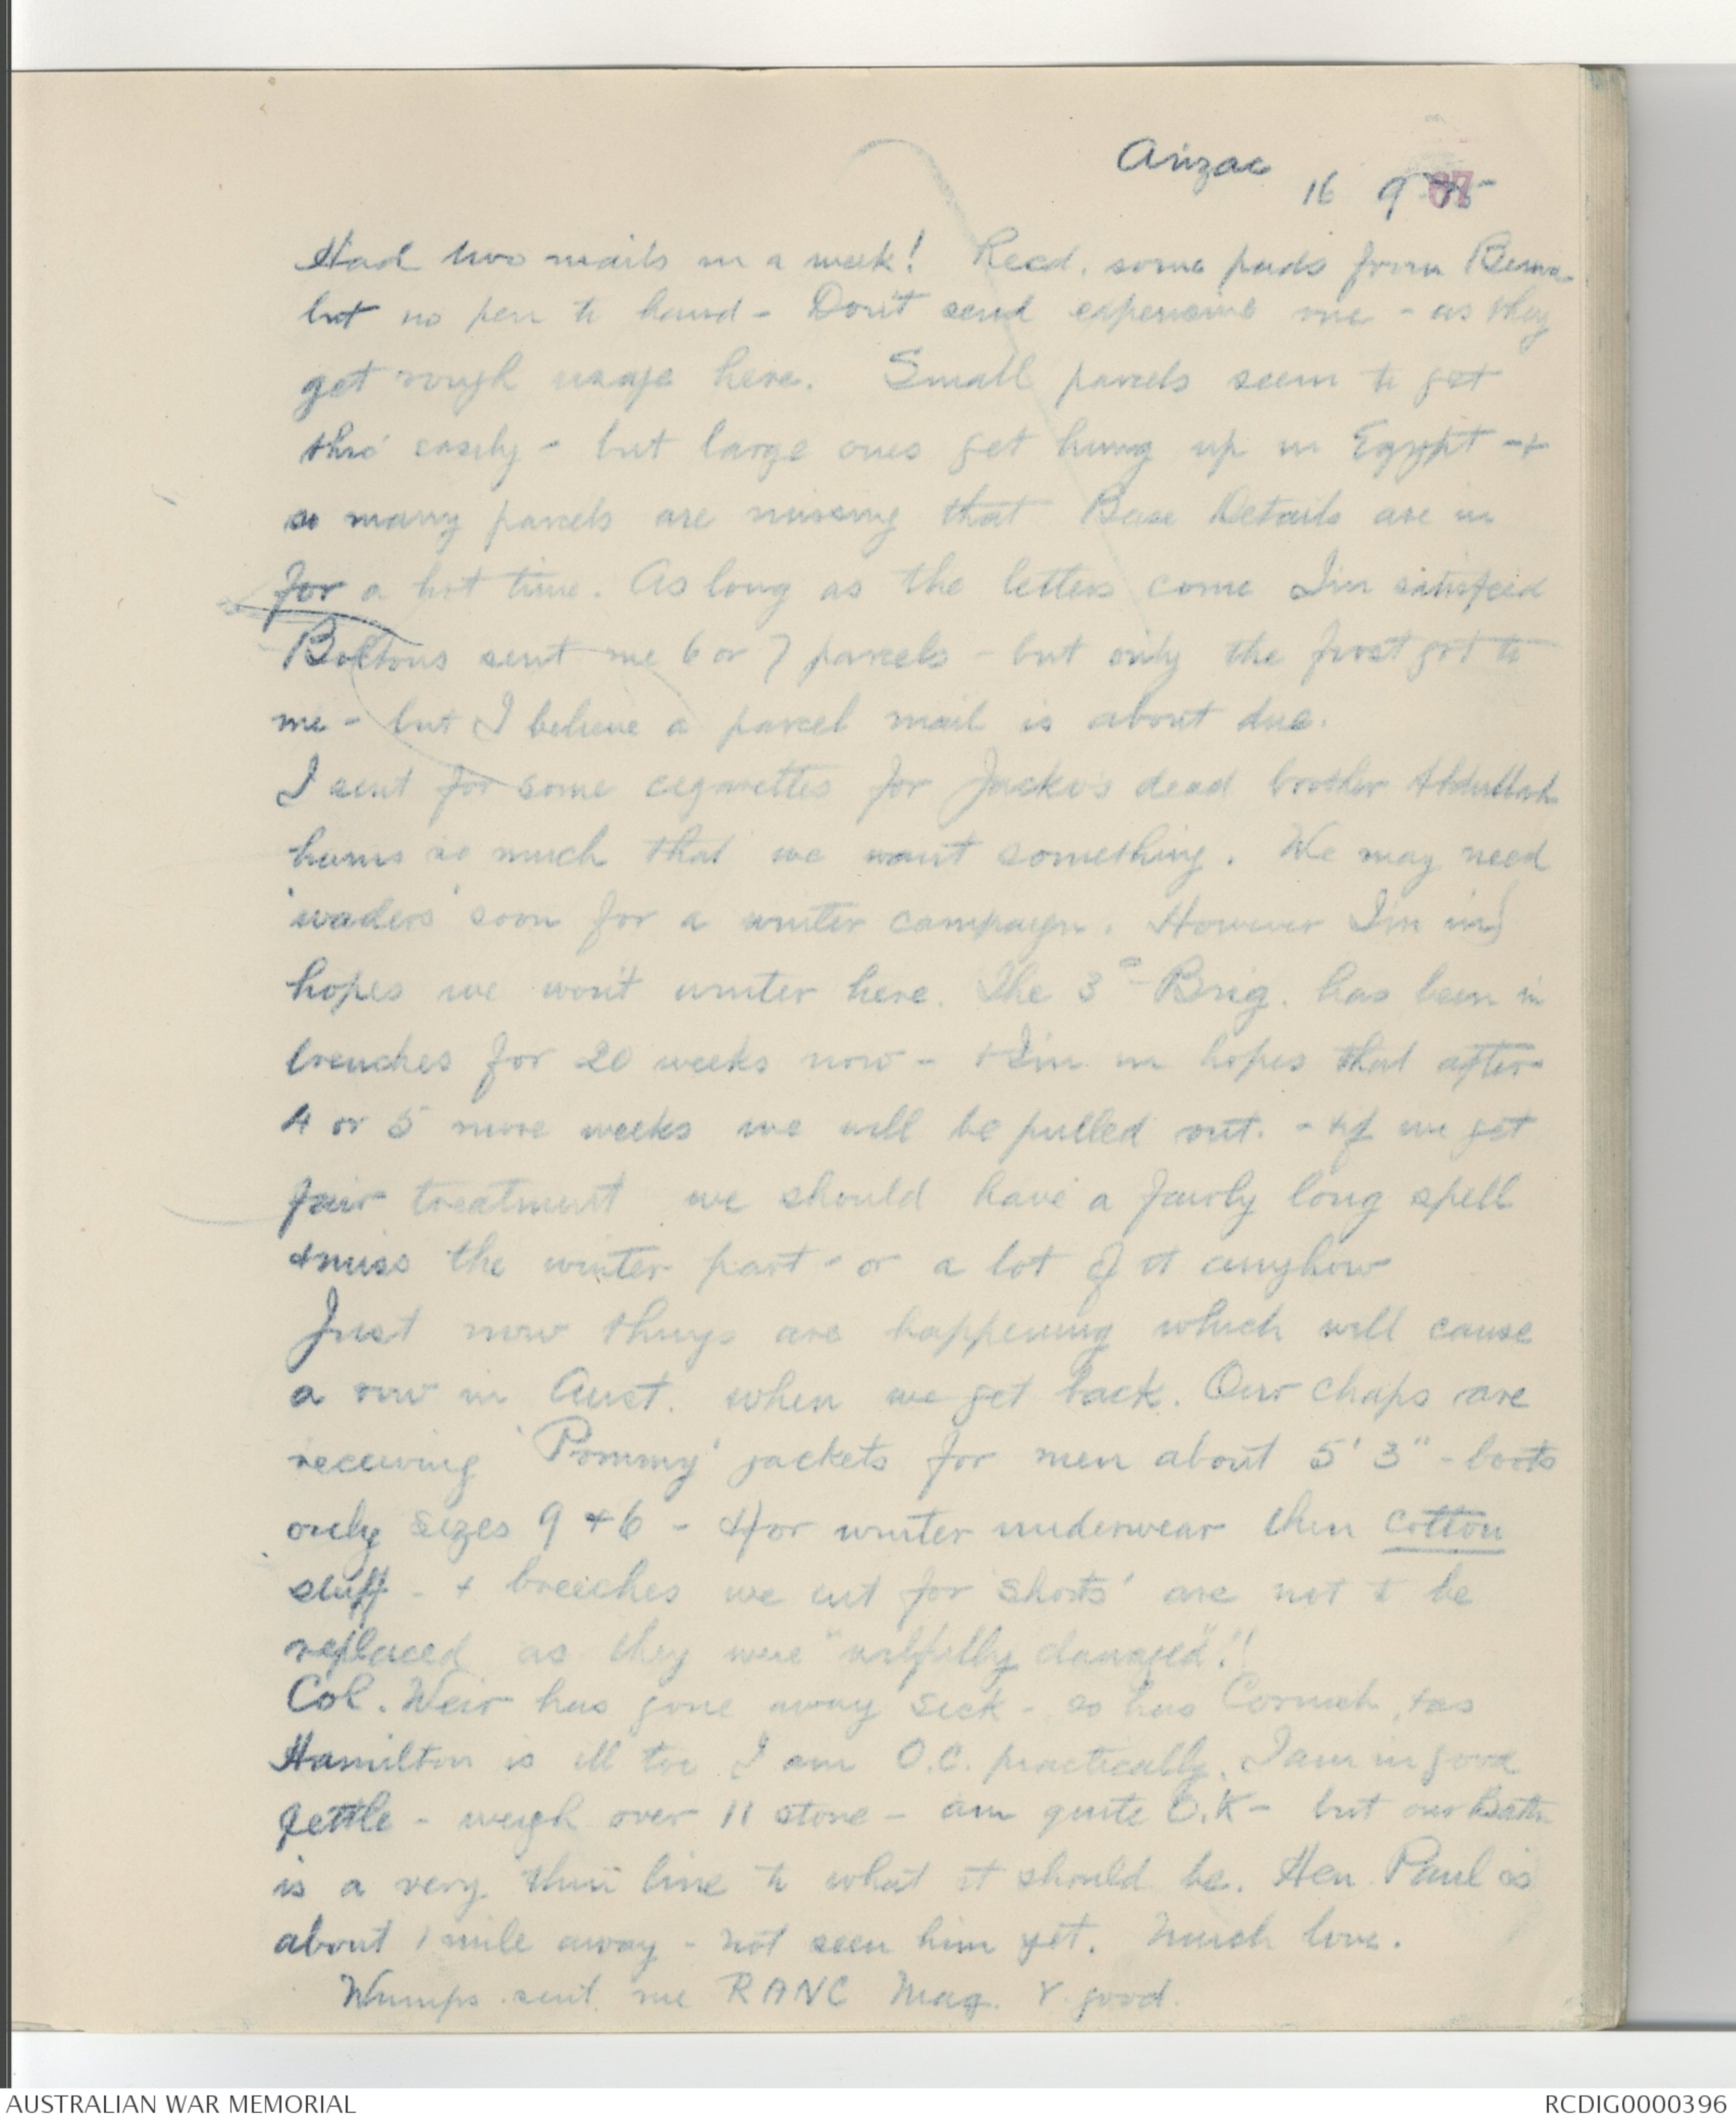 Anzac
16 9 15
67
Had two mails in a week! Recd. some pads from
but no pen to hand - Don't send expensive one - as they
get rough usage here. Small parcels seem to get
thro' easily - but large ones get hung up in Egypt - +
so many parcels are missing that Base Details are in
for a hot time. As long as the letters come I'm satisfied
Boltons sent me 6 or 7 parcels - but only the first got to
me - but I believe a parcel mail is about due.
I sent for some cigarettes for Jacko's dead brother Abdullah
hums so much that we want something. We may need
'waders' soon for a winter campaign. However I'm in
hopes we won't winter here. The 3rd Brig. has been in
trenches for 20 weeks now - + I'm in hopes that after
4 or 5 more weeks we will be pulled out. - + if we get
fair treatment we should have a fairly long spell
+ miss the winter part - or a lot of it anyhow
Just now things are happening which will cause
a row in Aust. when we get back. Our chaps are
receiving 'Pommy' jackets for men about 5' 3" - boots
only sizes 9 + 6 - + for winter underwear thin cotton
stuff - + breeches we cut for 'shorts' are not to be
replaced as they were "wilfully damaged"!!
Col. Weir has gone away sick - so has Cornish, + as
Hamilton is ill too I am O.C. practically. I am in good
fettle - weigh over 11 stone - am quite O.K - but our Battn
is a very thin line to what it should be. Hen Paul is
about 1 mile away - not seen him yet. Much love.
Wumps sent me RANC Mag. V. good.
AUSTRALIAN WAR MEMORIAL
RCDIG0000396